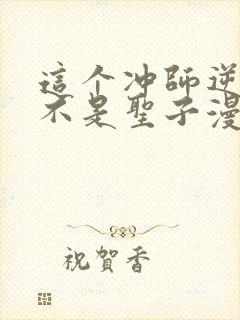 這个冲師逆
不是聖子漫
祝賀香